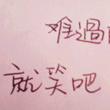 难过
就笑吧